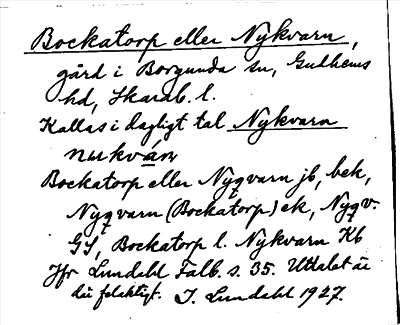 Bockatorp eller Nykvarn,
gård i Borgunda sn, Gudhems
hd, Skarab. l.
Kallas i dagligt tal Nykvarn
nukván
Bockatorp eller Nyqvarn jb, bek,
Nyqvarn (Bockatorp) ek, Nyqv.
GS, Bockatorp l. Nykvarn Kb
Jfr Lundahl Falb. s. 35. Uttalet är
där felaktigt. I. Lundahl 1927.